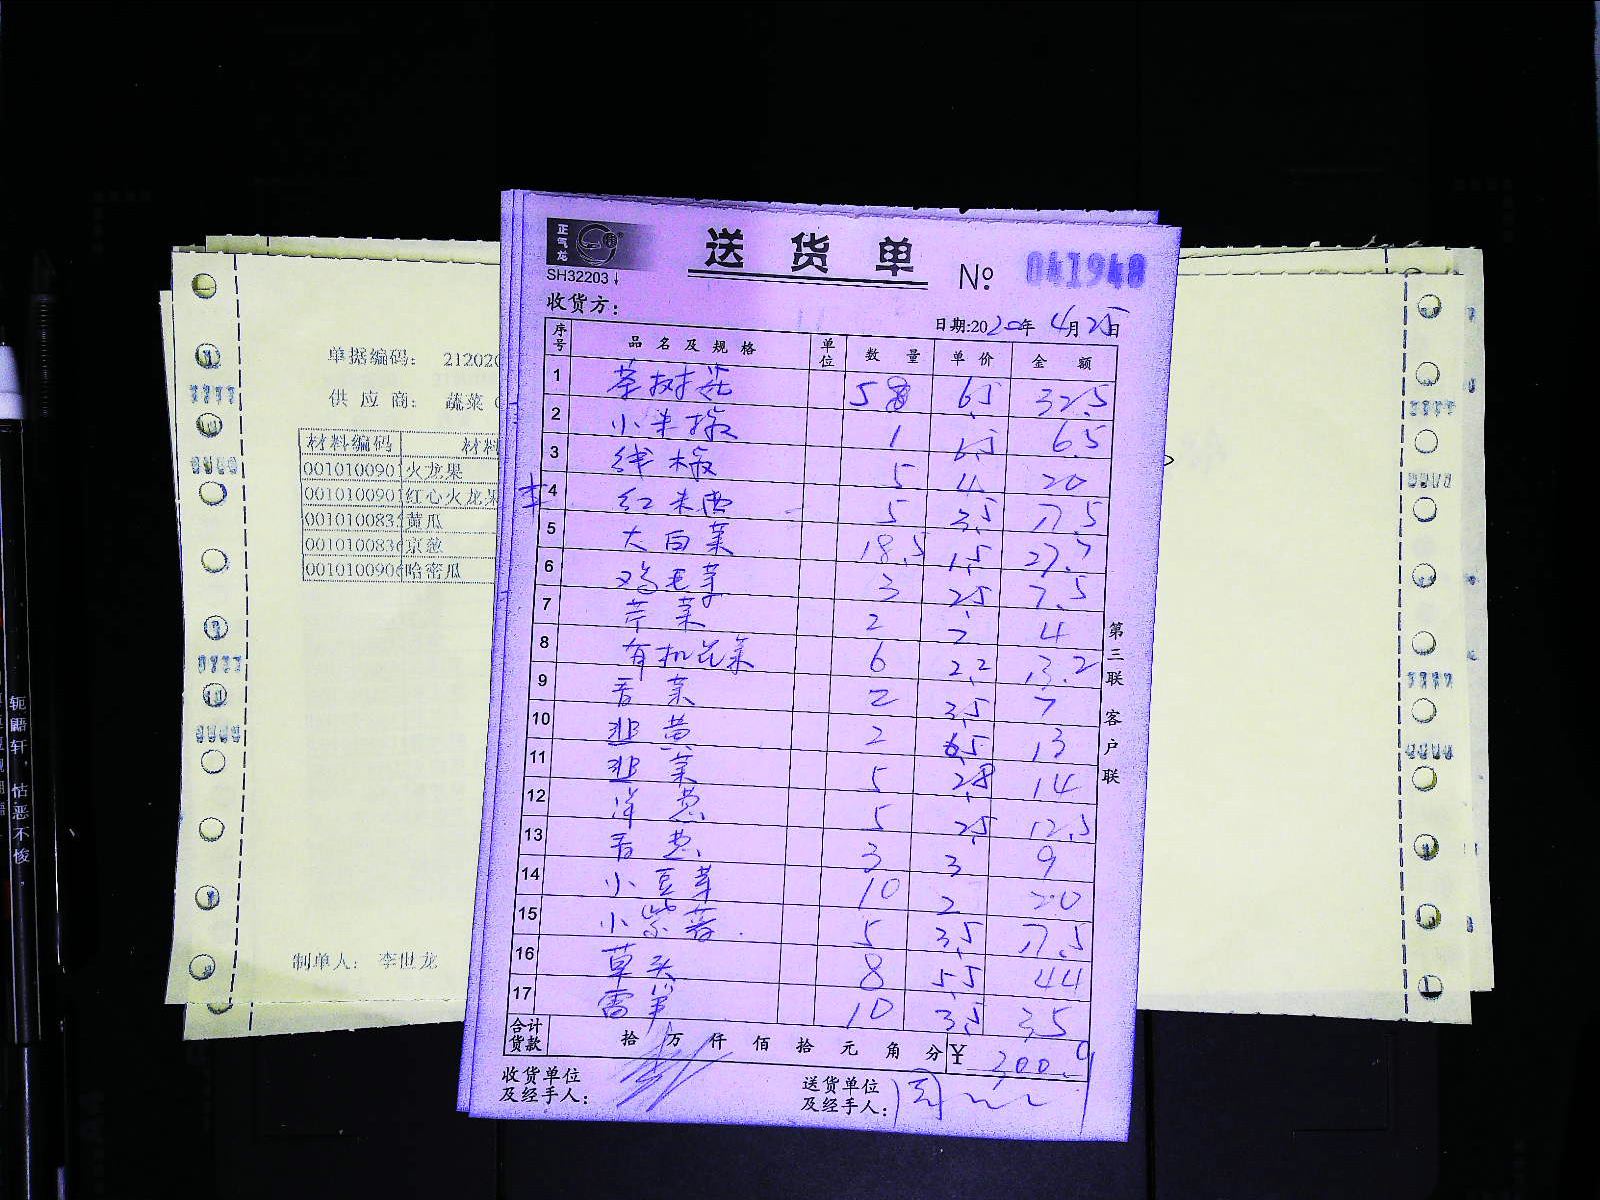 正气龙
SH32203↓
送货单 №: 041948
收货方:
日期:2020年 4月25日
序号 品名及规格 单位 数量 单价 金额
1 茶树菇 5 6.5 32.5
2 小米椒 1 6.5 6.5
3 线椒 5 4 20
4 红米西 5 3.5 17.5
5 大白菜 18.5 1.5 27.7
6 鸡毛菜 3 2.5 7.5
7 芹菜 2 2 4
8 有机花菜 6 2.2 13.2
9 香菜 2 3.5 7
10 韭黄 2 6.5 13
11 韭菜 5 2.8 14
12 洋葱 5 2.5 12.5
13 香葱 3 3 9
14 小豆芽 10 2 20
15 小紫薯 5 3.5 17.5
16 草头 8 5.5 44
17 雷笋 10 3.5 35
合计货款 拾万仟佰拾元角分 ¥ 300.9
收货单位及经手人:
送货单位及经手人: 周
第三联 客户联
单据编码: 212020
供应商: 蔬菜
材料编码 材料
0010100901 火龙果
0010100901 红心火龙果
001010083 黄瓜
001010083 京葱
001010090 哈密瓜
制单人: 李世龙
轭鼯轩,怙恶不悛